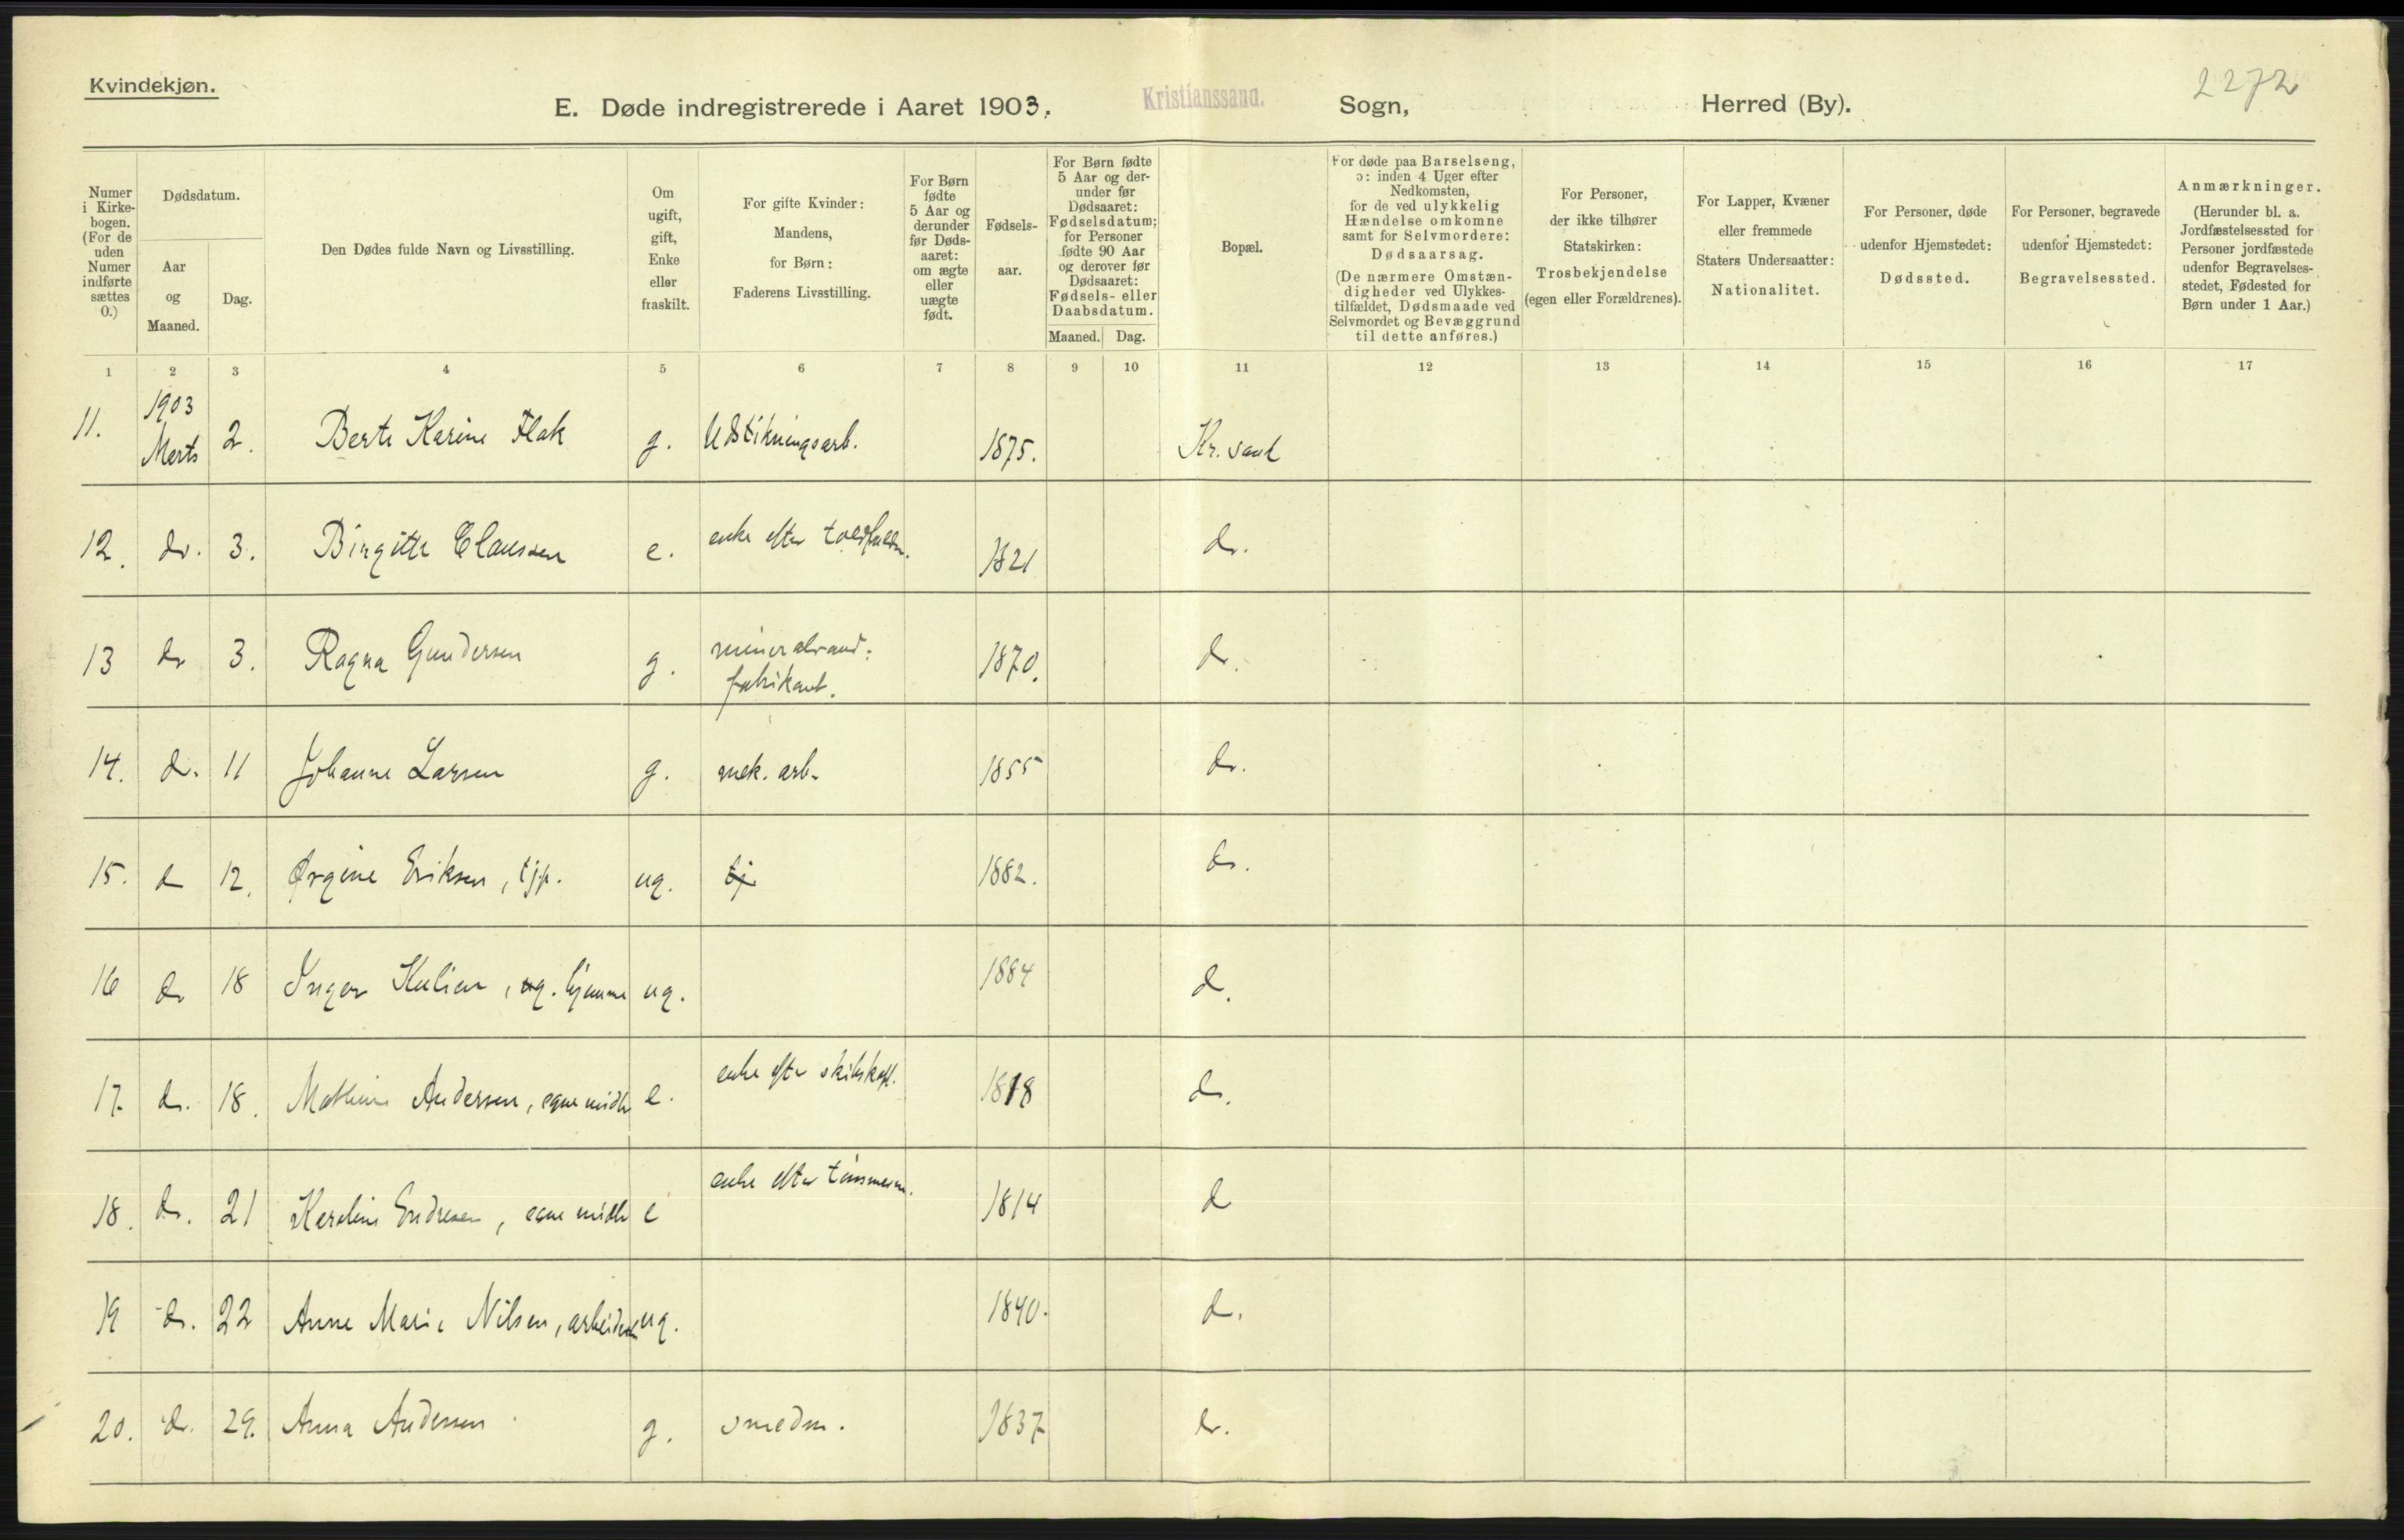 Kvindekjøn.
2272
E. Døde indregistrerede i Aaret 1903. Kristianssand. Sogn, Herred (By).
Numer i Kirkebogen. (For de uden Numer indførte sættes 0.)
Dødsdatum.
Aar og Maaned.
Dag.
Den Dødes fulde Navn og Livsstilling.
Om ugift, gift, Enke eller fraskilt.
For gifte Kvinder: Mandens, for Børn: Faderens Livsstilling.
For Børn fødte 5 Aar og derunder før Dødsaaret: om ægte eller uægte født.
Fødselsaar.
For Børn fødte 5 Aar og derunder før Dødsaaret: Fødselsdatum; for Personer fødte 90 Aar og derover før Dødsaaret: Fødsels- eller Daabsdatum.
Maaned. Dag.
Bopæl.
For døde paa Barselseng, ɔ: inden 4 Uger efter Nedkomsten, for de ved ulykkelig Hændelse omkomne samt for Selvmordere: Dødsaarsag. (De nærmere Omstændigheder ved Ulykkestilfældet, Dødsmaade ved Selvmordet og Bevæggrund til dette anføres.)
For Personer, der ikke tilhører Statskirken: Trosbekjendelse (egen eller Forældrenes).
For Lapper, Kvæner eller fremmede Staters Undersaatter: Nationalitet.
For Personer, døde udenfor Hjemstedet: Dødssted.
For Personer, begravede udenfor Hjemstedet: Begravelsessted.
Anmærkninger. (Herunder bl. a. Jordfæstelsessted for Personer jordfæstede udenfor Begravelsesstedet, Fødested for Børn under 1 Aar.)
1 2 3 4 5 6 7 8 9 10 11 12 13 14 15 16 17
11. 1903 Marts 2. Berte Karine Flak g. Udstikningsarb. 1875. Kr. sand
12. do. 3. Birgitte Claussen e. enke efter 1821 do.
13 do 3. Ragna Gundersen g. mineralvand: fabrikant. 1870. do.
14. do. 11 Johanne Larsen g. mek. arb. 1855 do.
15. do 12. Ørgine Eriksen, tjp. ug. tj 1882. do.
16 do 18 Inger Julian, ug. hjemme ug. 1884 do.
17. do. 18. Mathine Andersen, egne midler e. enke efter skibskapt. 1818 do.
18. do. 21 Karoline Endresen, egne midler e enke efter tømmerm. 1814 do
19 do. 22 Anne Marie Nilsen, arbeiderske ug. 1840. do.
20. do. 29. Anna Andersen g. smedm. 1837 do.